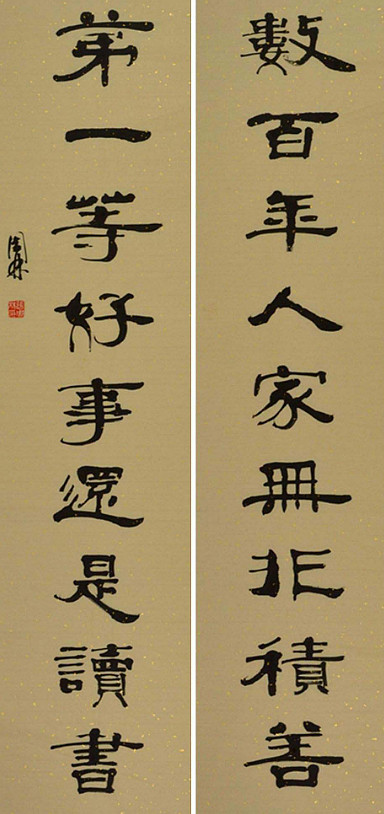 數百年人家無非積善
第一等好事還是讀書
周